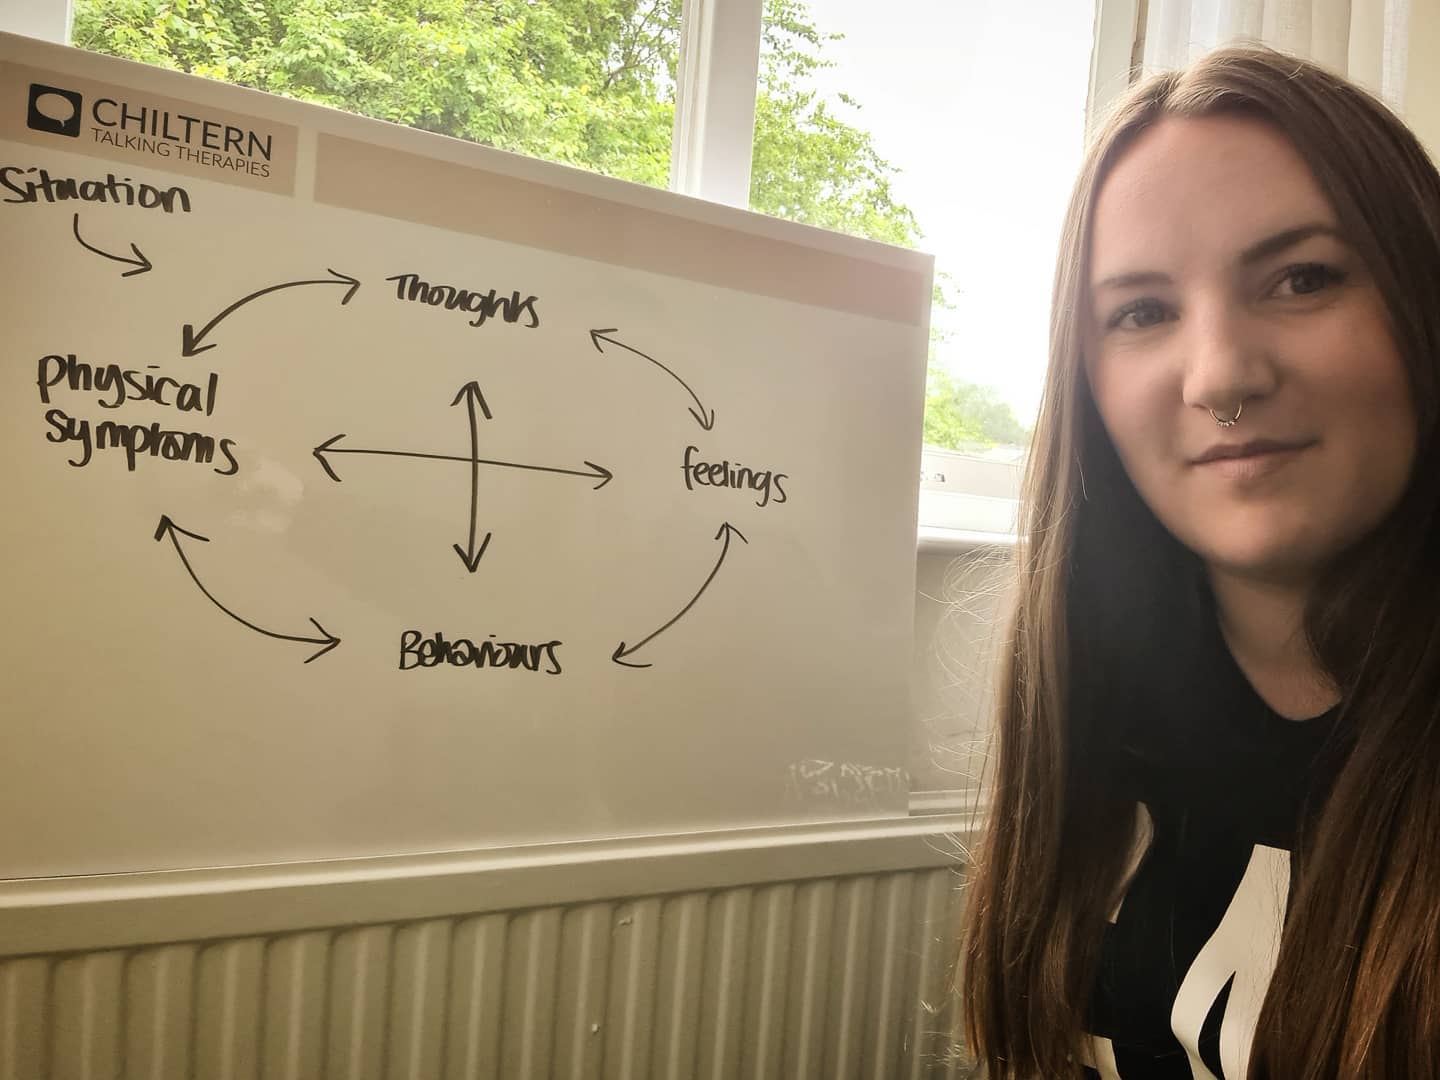 CHILTERN
TALKING THERAPIES
Situation
Thoughts
Physical
symptoms
feelings
Behaviours